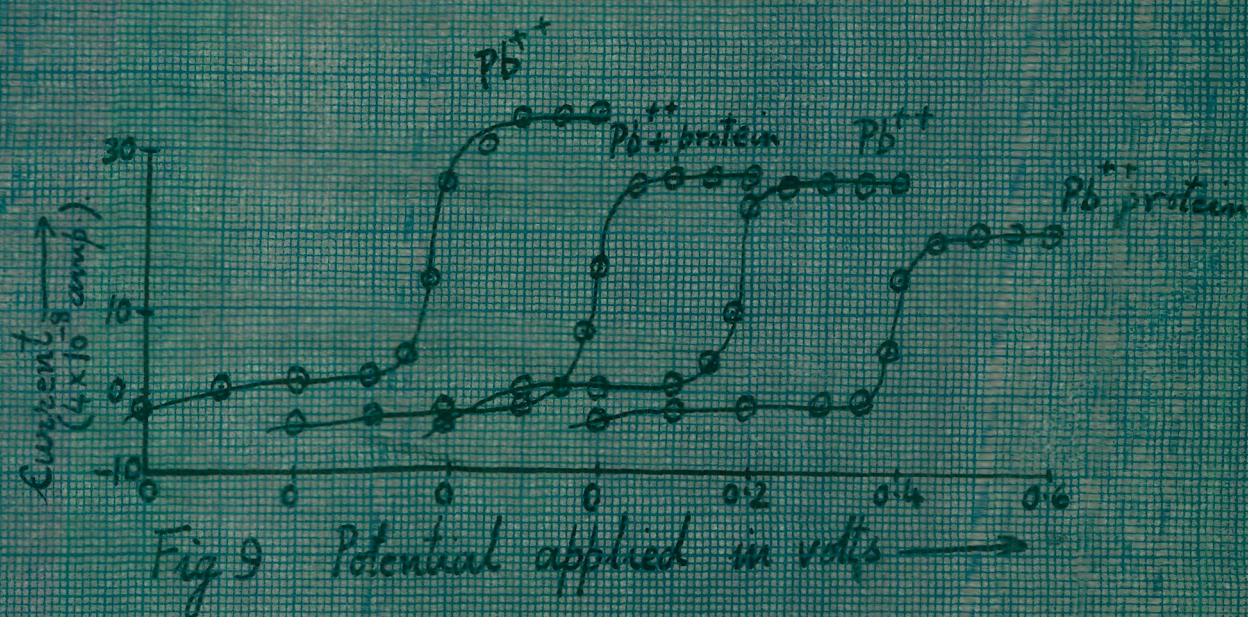 Pb++
Pb++ + protein
Pb++
Pb++ protein
30
10
0
-10
Current →
(4 x 10-8 amp.)
0 0 0 0 0.2 0.4 0.6
Fig 9 Potential applied in volts →